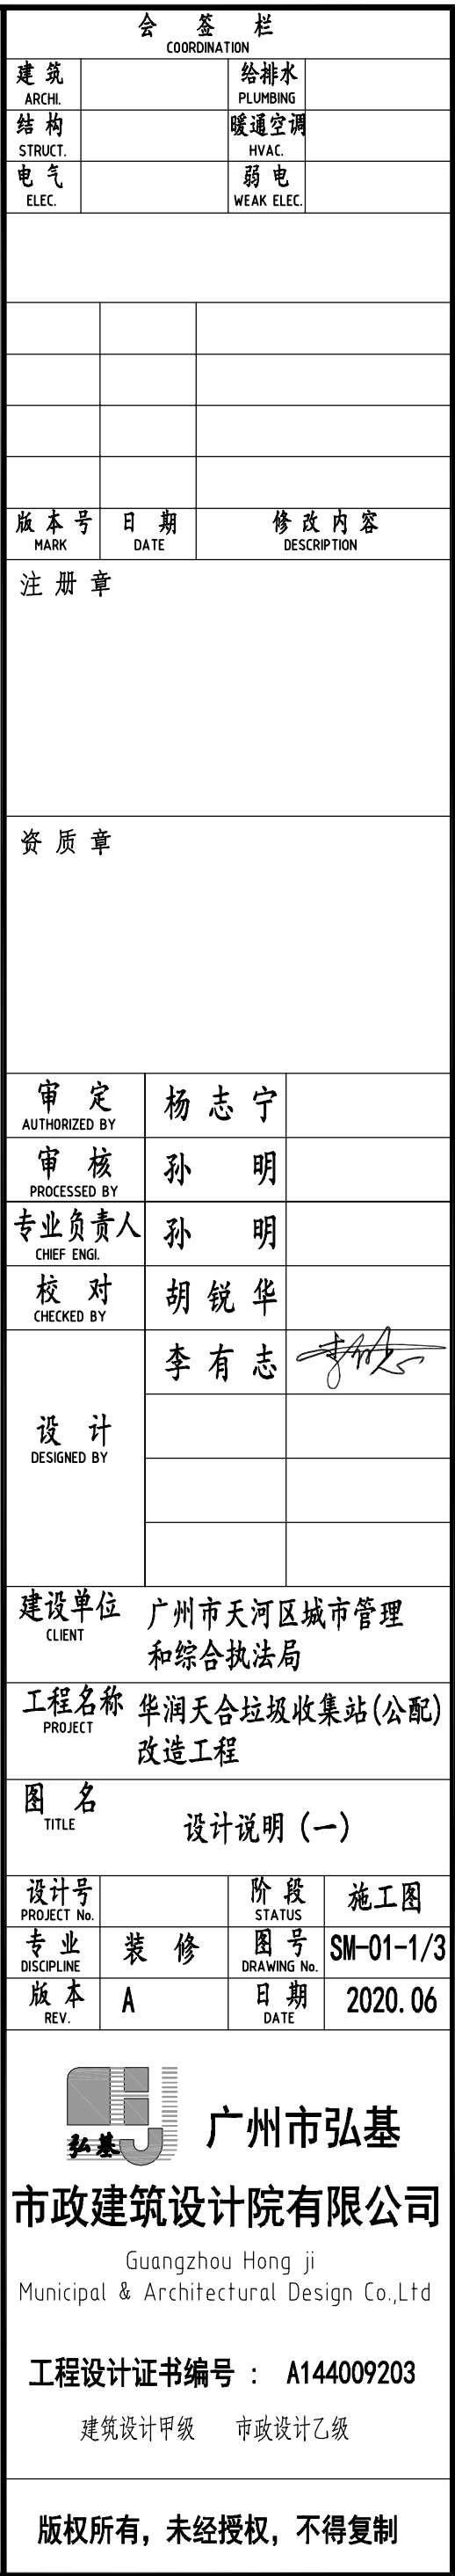 会 签 栏
COORDINATION
建 筑
ARCHI.
给排水
PLUMBING
结 构
STRUCT.
暖通空调
HVAC.
电 气
ELEC.
弱 电
WEAK ELEC.
版 本 号
MARK
日 期
DATE
修 改 内 容
DESCRIPTION
注 册 章
资 质 章
审 定
AUTHORIZED BY
杨 志 宁
审 核
PROCESSED BY
孙 明
专业负责人
CHIEF ENGI.
孙 明
校 对
CHECKED BY
胡 锐 华
设 计
DESIGNED BY
李 有 志
建设单位
CLIENT
广州市天河区城市管理
和综合执法局
工程名称
PROJECT
华润天合垃圾收集站(公配)
改造工程
图 名
TITLE
设计说明 (一)
设计号
PROJECT No.
阶 段
STATUS
施工图
专 业
DISCIPLINE
装 修
图 号
DRAWING No.
SM-01-1/3
版 本
REV.
A
日 期
DATE
2020.06
弘基
广州市弘基
市政建筑设计院有限公司
Guangzhou Hong ji
Municipal & Architectural Design Co.,Ltd
工程设计证书编号 : A144009203
建筑设计甲级 市政设计乙级
版权所有，未经授权，不得复制